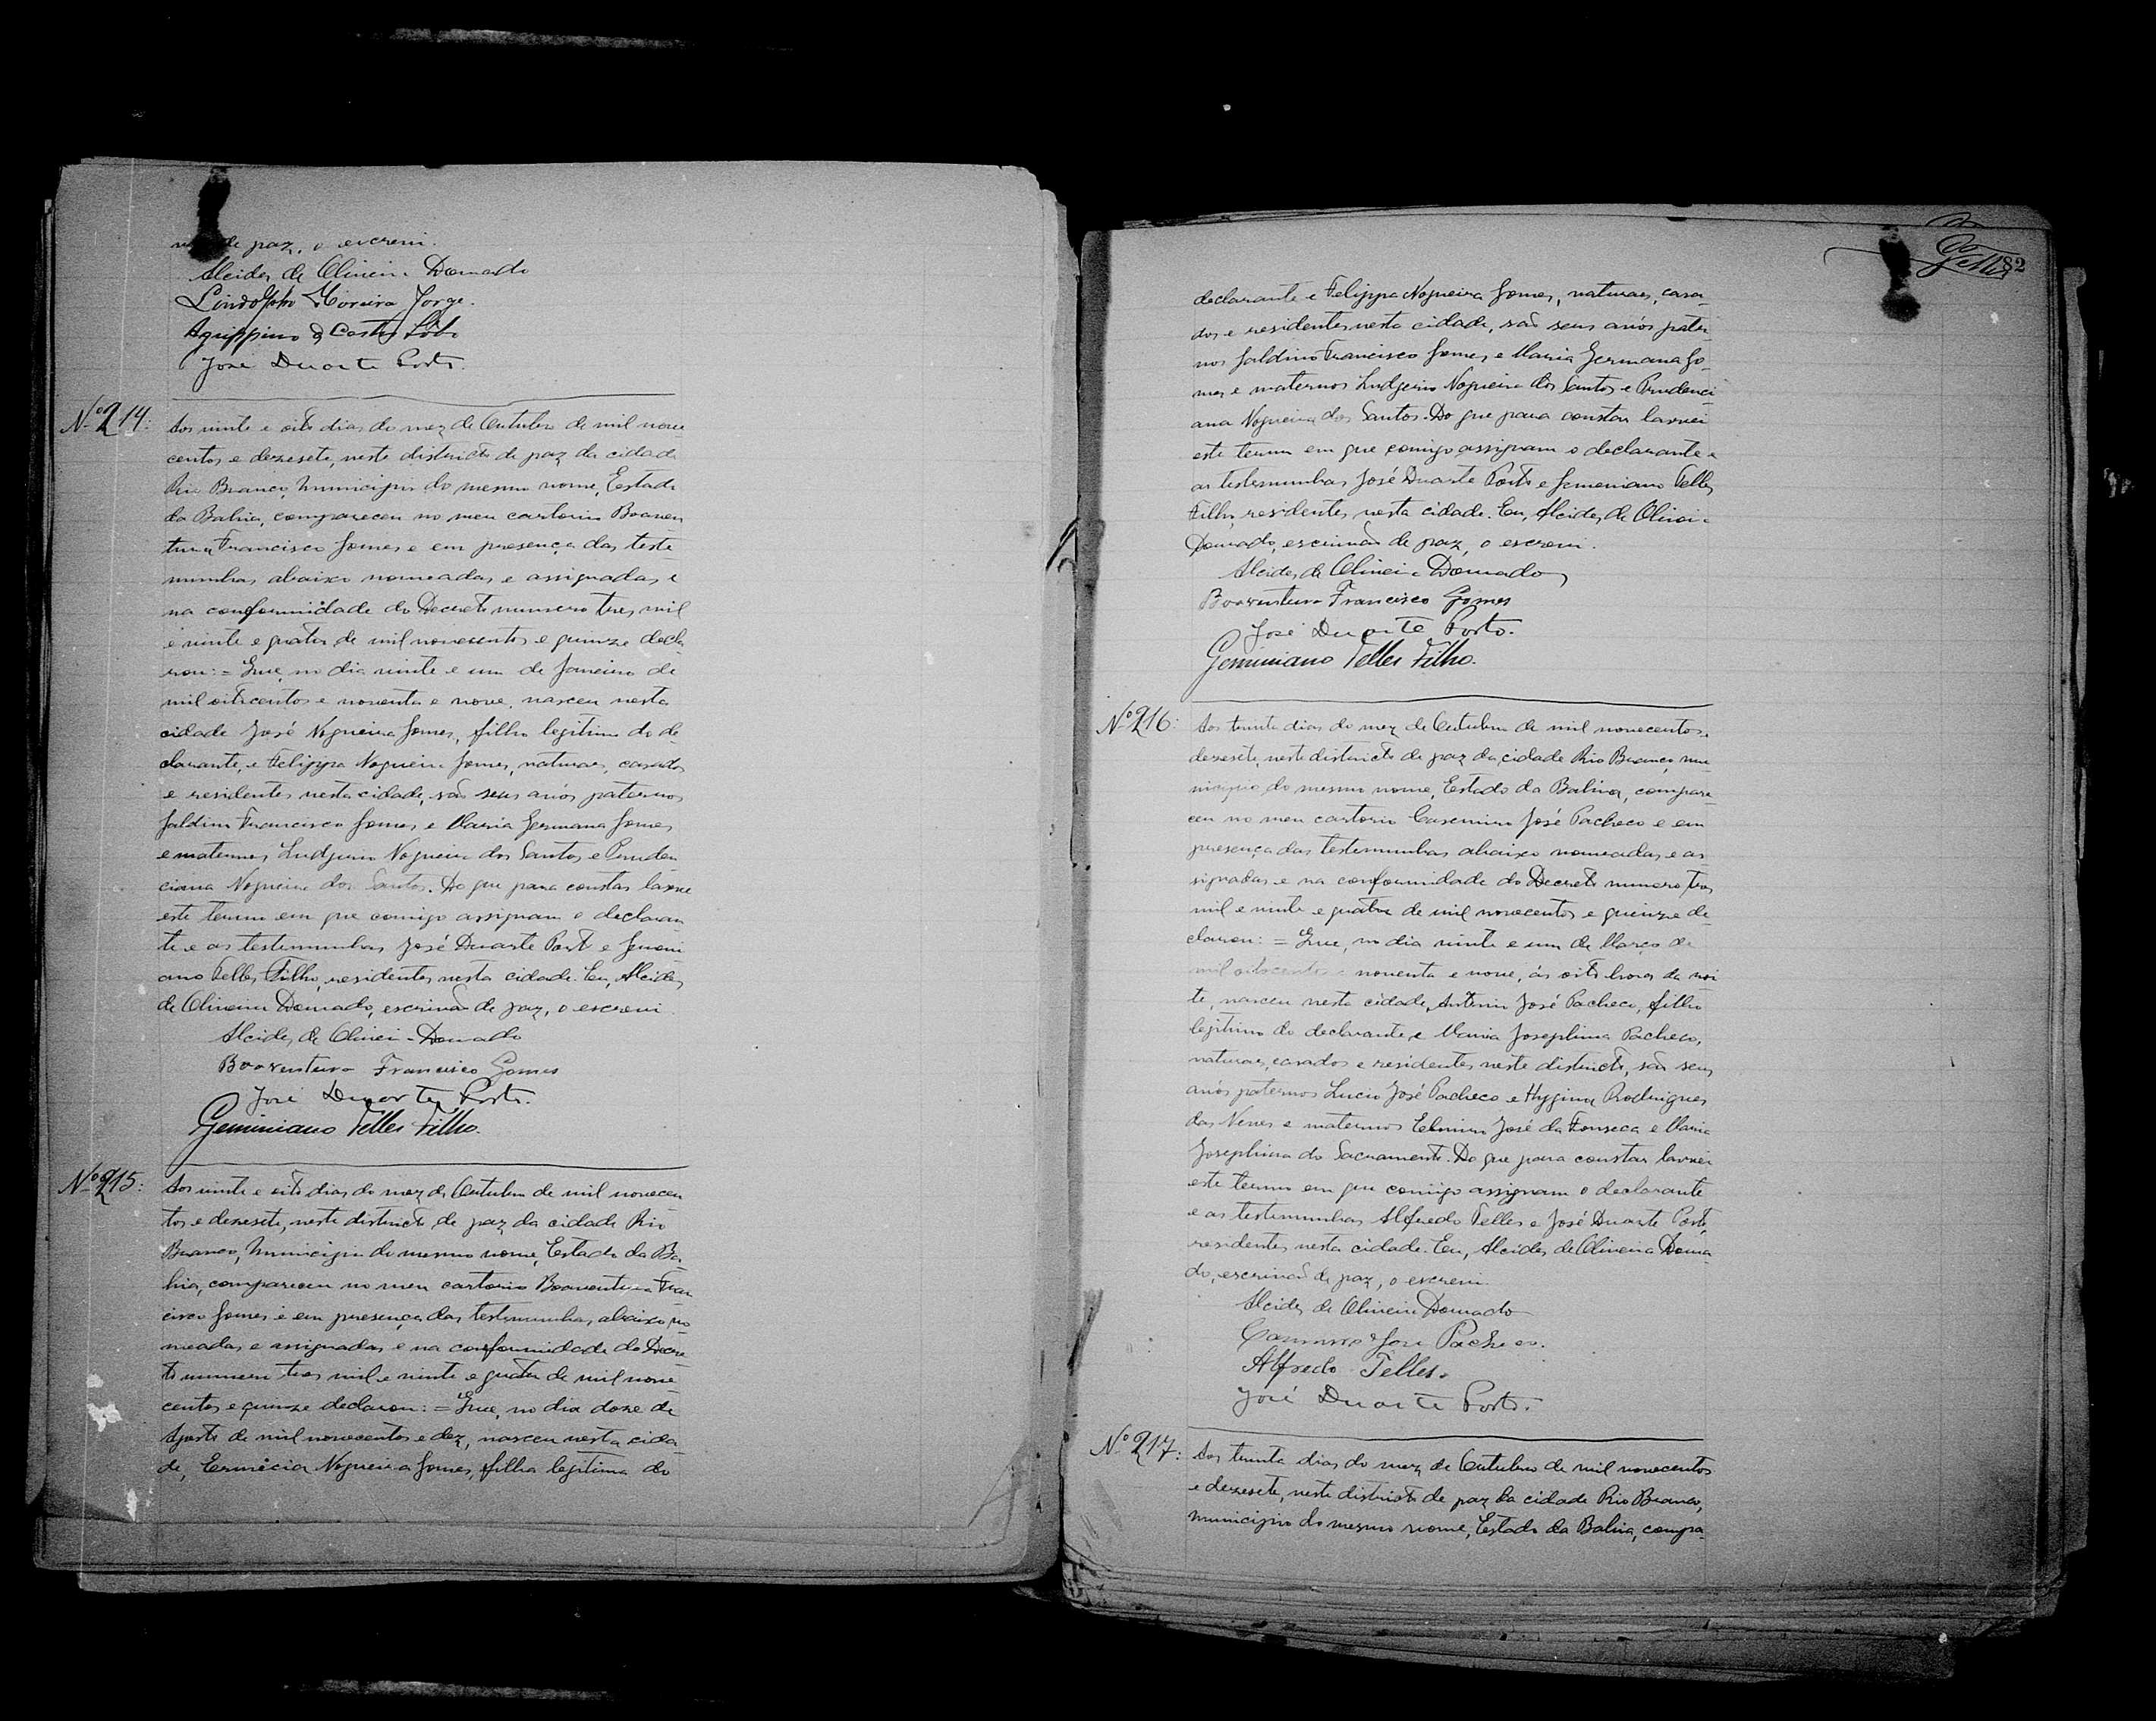 de paz, o escrevi.
Alcides de Oliveira Dourado
Lindolpho Moreira Jorge.
Agrippino de Castro Lôbo
José Duarte Porto.
Nº 214:
Aos vinte e oito dias do mez de Outubro de mil nove-
centos e dezesete, neste districto de paz da cidade
Rio Branco, Municipio do mesmo nome, Estado
da Bahia, compareceu no meu cartorio Boaven
tura Francisco Gomes e em presença das teste
munhas abaixo nomeadas e assignadas e
na conformidade do Decreto numero tres mil
e vinte e quatro de mil novecentos e quinze decla
rou: = Que, no dia vinte e um de Janeiro de
mil oitocentos e noventa e nove, nasceu nesta
cidade José Nogueira Gomes, filho legitimo do de-
clarante, e Felippa Nogueira Gomes, naturaes, casados
e residentes nesta cidade, são seus avós paternos
Galdino Francisco Gomes e Maria Germana Gomes
e maternos Ludgerio Nogueira dos Santos e Pruden
ciana Nogueira dos Santos. Do que para constar lavrei
este termo em que comigo assignam o declaran
te e as testemunhas José Duarte Porto e Gemeni
ano Telles Filho, residentes nesta cidade. Eu, Alcides
de Oliveira Dourado, escrivão de paz, o escrevi.
Alcides de Oliveira Dourado
Boaventura Francisco Gomes
José Duarte Porto.
Geminiano Telles Filho.
Nº 215:
Aos vinte e oito dias do mez de Outubro de mil novecen
tos e dezesete, neste districto de paz da cidade Rio
Branco, Municipio do mesmo nome, Estado da Ba-
hia, compareceu no meu cartorio Boaventura Fran
cisco Gomes e em presença das testemunhas abaixo no-
meadas e assignadas e na conformidade do Decre-
to numero tres mil e vinte e quatro de mil nove-
centos e quinze declarou: = Que, no dia doze de
Agosto de mil novecentos e dez, nasceu nesta cida-
de, Ermecia Nogueira Gomes, filha legitima do
82
declarante e Felippa Nogueira Gomes, naturaes, casa-
dos e residentes nesta cidade, são seus avós pater-
nos Galdino Francisco Gomes e Maria Germana Go-
mes e maternos Ludgerio Nogueira dos Santos e Prudenci-
ana Nogueira dos Santos. Do que para constar lavrei
este termo em que comigo assignam o declarante e
as testemunhas José Duarte Porto e Gemeniano Telles
Filho, residentes nesta cidade. Eu, Alcides de Oliveira
Dourado, escrivão de paz, o escrevi.
Alcides de Oliveira Dourado
Boaventura Francisco Gomes
José Duarte Porto.
Geminiano Telles Filho.
Nº 216:
Aos trinta dias do mez de Outubro de mil novecentos e
dezesete, neste districto de paz da cidade Rio Branco, mu-
nicipio do mesmo nome, Estado da Bahia, compare-
ceu no meu cartorio Casemiro José Pacheco e em
presença das testemunhas abaixo nomeadas e as-
signadas e na conformidade do Decreto numero tres
mil e vinte e quatro de mil novecentos e quinze de-
clarou: = Que, no dia vinte e um de Março de
mil oitocentos e noventa e nove, ás oito horas da noi-
te, nasceu nesta cidade, Antonio José Pacheco, filho
legitimo do declarante e Maria Josephina Pacheco,
naturaes, casados e residentes neste districto, são seus
avós paternos Lucio José Pacheco e Hygina Rodrigues
das Neves e maternos José da Fonseca e Maria
Josephina do Sacramento. Do que para constar lavrei
este termo em que comigo assignam o declarante
e as testemunhas Alfredo Telles e José Duarte Porto,
residentes nesta cidade. Eu, Alcides de Oliveira Doura-
do, escrivão de paz, o escrevi.
Alcides de Oliveira Dourado
José Pacheco.
Alfredo Telles.
José Duarte Porto.
Nº 217:
Aos trinta dias do mez de Outubro de mil novecentos
e dezesete, neste districto de paz da cidade Rio Branco,
municipio do mesmo nome, Estado da Bahia, compa-